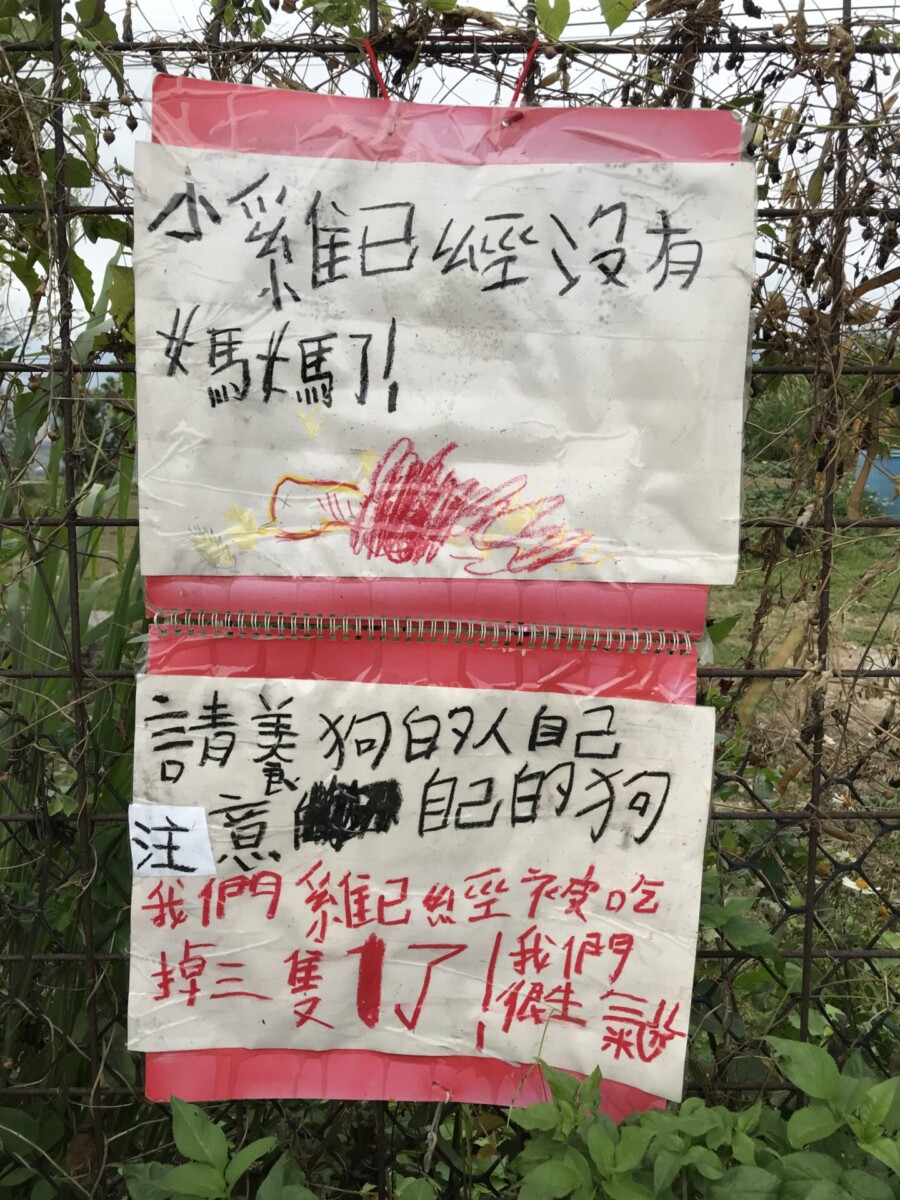 小雞已經沒有
媽媽了!
請養狗的人自己
注意自己的狗
我們雞已經被吃
掉三隻了!我們
很生氣